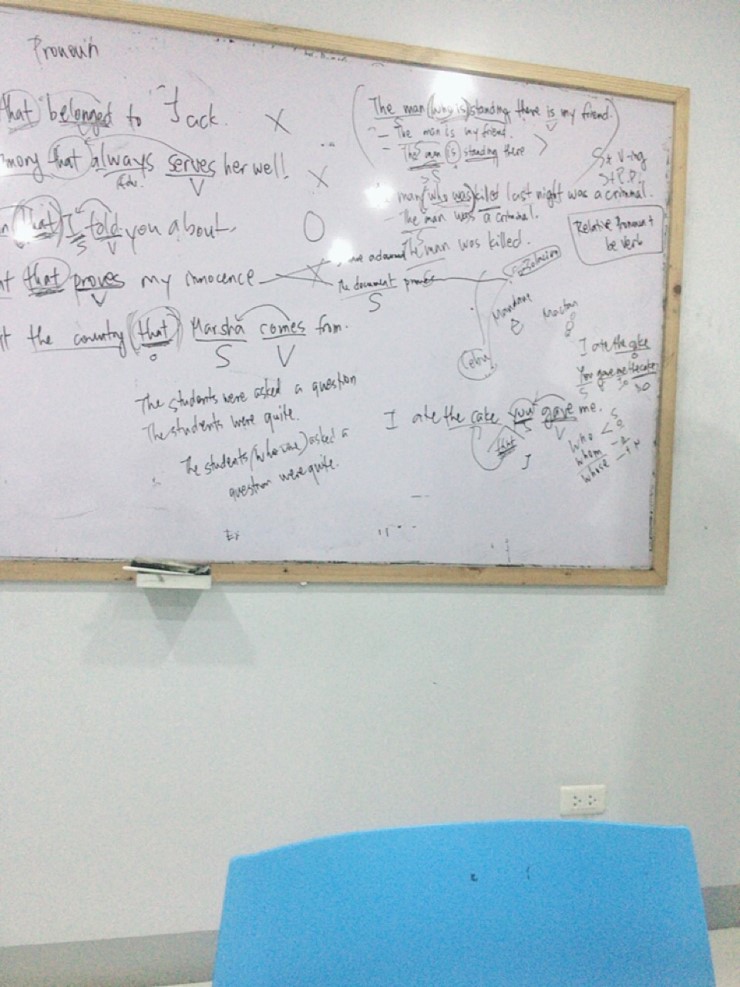 Pronoun
that belonged to Jack. X
that always serves her well X
Adv. V
that I told you about. O
S V
that proves my innocence X
V
the country that Marsha comes from.
O S V
The students were asked a question
The students were quite.
The students (who were) asked a
question were quite.
The man (who is) standing there is my friend.
S V
- The man is my friend.
- The man is standing there
S + V-ing
S + P.P.
man (who was) killed last night was a criminal.
- The man was a criminal.
The man was killed.
Relative Pronoun +
be verb
The document proves
S
Mandaue
Mactan
Cebu
I ate the cake
O
You gave me the cake
S
I ate the cake you gave me.
S V
that
who
whom
whose